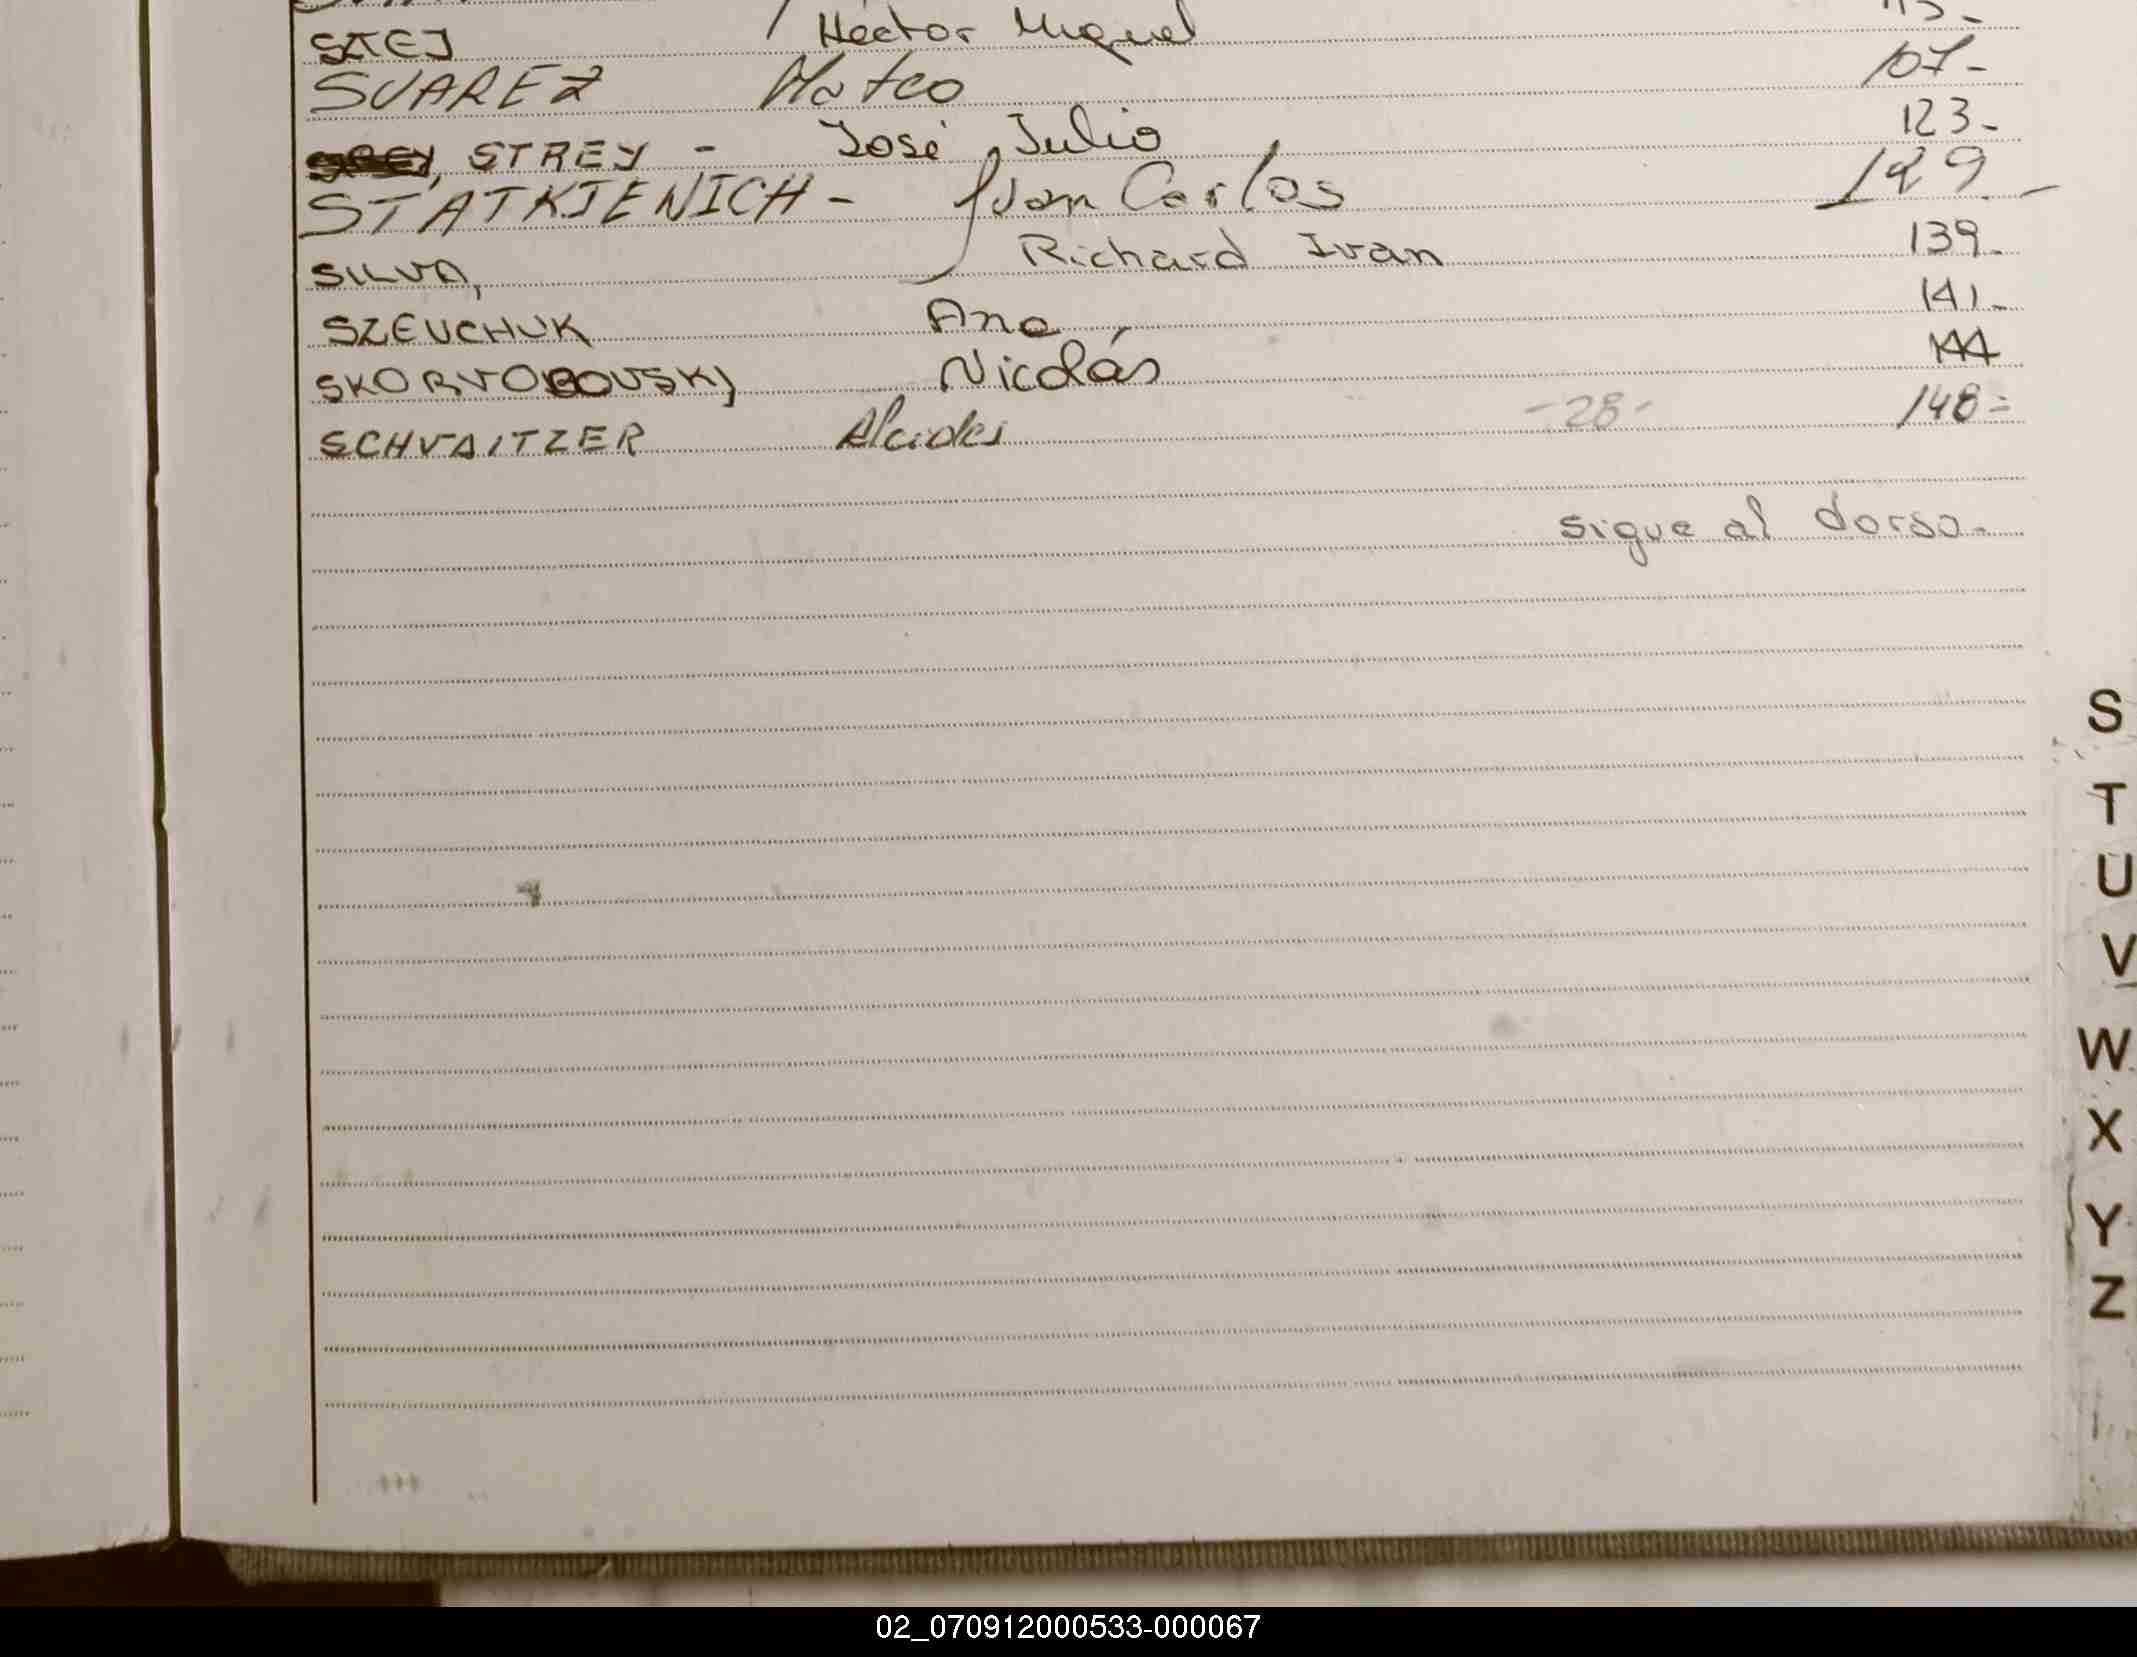 Héctor Miguel
SUAREZ Mateo 107-
STREY - José Julio 123-
STATKIENICH - Juan Carlos 129-
SILVA, Richard Ivan 139-
SZEVCHUK Ana 141-
SKORVOBOVSKY Nicolás 144
SCHVAITZER Alcides -28- 148=
sigue al dorso-
S
T
U
V
W
X
Y
Z
02_070912000533-000067